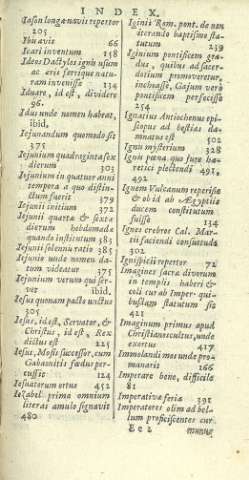 INDEX.
Iason longænovis repertor
205
Ibis avis 66
Icari inventum 158
Ideos Dactylos ignis usum
ac æris ferrique natu-
ram invenisse 134
Iduare, id est, dividere
96.
Idus unde nomen habeat,
ibid.
Iejunandum quomodo sit
375
Iejunium quadragintasex
dierum 303
Iejunium in quatuor anni
tempora a quo distin-
ctum fuerit 379
Iejunii initium 372
Iejunii quartæ & sextæ
dierum hebdomadæ
quando institutum 383
Iejunii solennis ratio 385
Iejunii unde nomen da-
tum videatur 375
Iejunium verum quo ser-
vet ibid.
Iesus quonam pacto unctus
305
Iesus, id est, Servator, &
Christus, id est, Rex
dictus est 225
Iesus, Mosis successor, cum
Gabaonitis fœdus per-
cussit 124
Iesuatorum ortus 452
Iezabel prima omnium
literas amulo signavit
480
Iginii Rom. pont. de non
iterando baptismo sta-
tutum 259
Iginium pontificem gra-
dus, quibus ad sacer-
dotium promoveretur,
inchoasse, Gajum vero
pontificem perfecisse
254
Ignatius Antiochenus epi-
scopus ad bestias da-
mnatus est 502
Ignis mysterium 328
Ignis pœna quo jure hæ-
retici plectendi 491,
492
Ignem Vulcanum reperisse
& ob id ab Ægyptiis
ducem constitutum
fuisse 134
Ignes crebros Cal. Mar-
tii faciendi consuetudo
302
Ignispicii repertor 72
Imagines sacræ divorum
in templis haberi &
coli cur ab Imper. qui-
busdam statutum sit
421
Imaginum primus apud
Christianos cultus, unde
exortus 417
Immolandi mos unde pro-
manarit 166
Imperare bene, difficile
81
Imperativæ feriæ 391
Imperatores olim ad bel-
lum proficiscentes cur
Ee 2 munus